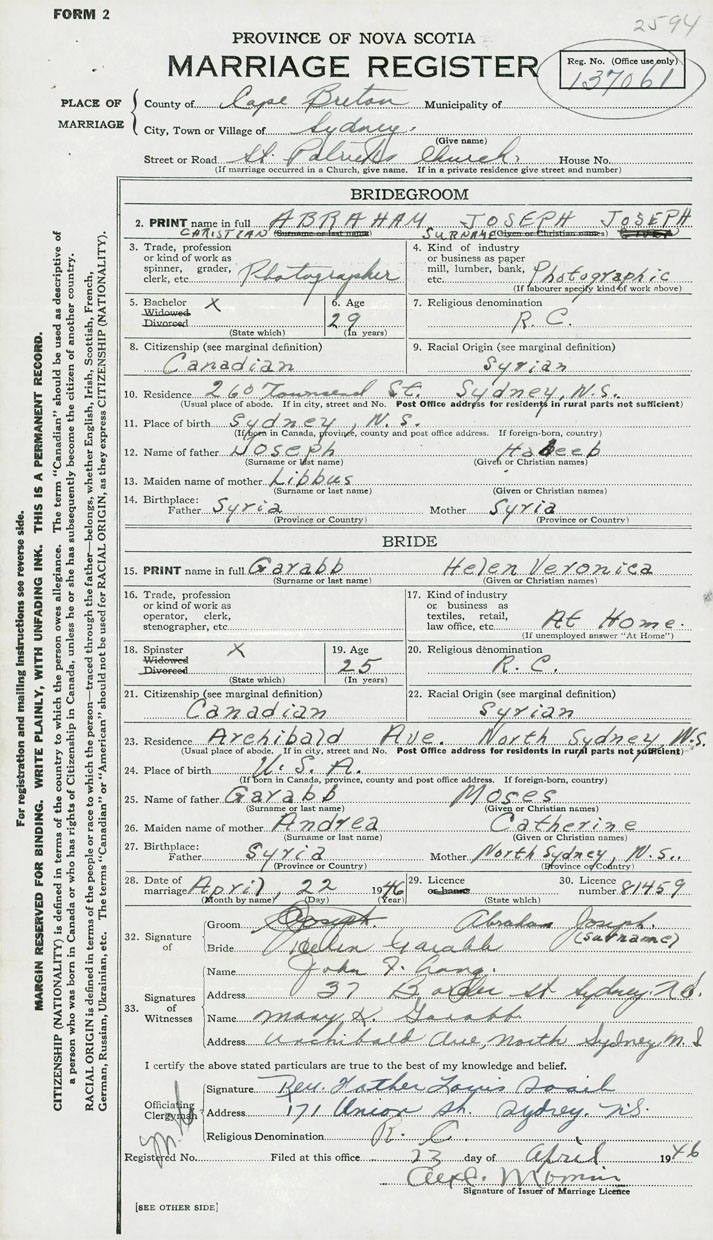 FORM 2
2594
PROVINCE OF NOVA SCOTIA
MARRIAGE REGISTER
Reg. No. (Office use only)
137061
PLACE OF MARRIAGE
County of Cape Breton Municipality of
City, Town or Village of Sydney.
(Give name)
Street or Road St. Patricks Church. House No.
(If marriage occurred in a Church, give name. If in a private residence give street and number)
BRIDEGROOM
2. PRINT name in full ABRAHAM JOSEPH JOSEPH
CHRISTIAN (Surname or last name) SURNAME (Given or Christian names)
3. Trade, profession or kind of work as spinner, grader, clerk, etc. Photographer
4. Kind of industry or business as paper mill, lumber, bank, etc. Photographic
(If labourer specify kind of work above)
5. Bachelor X
Widowed
Divorced
(State which)
6. Age 29
(In years)
7. Religious denomination
R. C.
8. Citizenship (see marginal definition)
Canadian
9. Racial Origin (see marginal definition)
Syrian
10. Residence 260 Townsend St. Sydney, N.S.
(Usual place of abode. If in city, street and No. Post Office address for residents in rural parts not sufficient)
11. Place of birth Sydney, N.S.
(If born in Canada, province, county and post office address. If foreign-born, country)
12. Name of father Joseph Habeeb
(Surname or last name) (Given or Christian names)
13. Maiden name of mother Libbus
(Surname or last name) (Given or Christian names)
14. Birthplace:
Father Syria Mother Syria
(Province or Country) (Province or Country)
BRIDE
15. PRINT name in full Garabb Helen Veronica
(Surname or last name) (Given or Christian names)
16. Trade, profession or kind of work as operator, clerk, stenographer, etc.
17. Kind of industry or business as textiles, retail, law office, etc. At Home.
(If unemployed answer "At Home")
18. Spinster X
Widowed
Divorced
(State which)
19. Age 25
(In years)
20. Religious denomination
R. C.
21. Citizenship (see marginal definition)
Canadian
22. Racial Origin (see marginal definition)
Syrian
23. Residence Archibald Ave. North Sydney, N.S.
(Usual place of abode. If in city, street and No. Post Office address for residents in rural parts not sufficient)
24. Place of birth U. S. A.
(If born in Canada, province, county and post office address. If foreign-born, country)
25. Name of father Garabb Moses
(Surname or last name) (Given or Christian names)
26. Maiden name of mother Andrea Catherine
(Surname or last name) (Given or Christian names)
27. Birthplace:
Father Syria Mother North Sydney, N.S..
(Province or Country) (Province or Country)
28. Date of marriage April, 22 1946
(Month by name) (Day) (Year)
29. Licence
or banns
(State which)
30. Licence number 81459
32. Signature of
Groom Joseph. Abraham Joseph.
(surname)
Bride Helen Garabb
33. Signatures of Witnesses
Name John F.
Address 37 St Sydney. N.S.
Name Mary Garabb
Address Archibald Ave, North Sydney N S
I certify the above stated particulars are true to the best of my knowledge and belief.
Officiating Clergyman
Signature Rev. Father Louis
Address 171 Union St. Sydney. N.S.
Religious Denomination R. C.
Registered No. Filed at this office 23 day of April 1946
Signature of Issuer of Marriage Licence
[SEE OTHER SIDE]
For registration and mailing instructions see reverse side.
MARGIN RESERVED FOR BINDING. WRITE PLAINLY, WITH UNFADING INK. THIS IS A PERMANENT RECORD.
CITIZENSHIP (NATIONALITY) is defined in terms of the country to which the person owes allegiance. The term "Canadian" should be used as descriptive of
a person who was born in Canada or who has rights of Citizenship in Canada, unless he or she has subsequently become the citizen of another country.
RACIAL ORIGIN is defined in terms of the people or race to which the person—traced through the father—belongs, whether English, Irish, Scottish, French,
German, Russian, Ukrainian, etc. The terms "Canadian" or "American" should not be used for RACIAL ORIGIN, as they express CITIZENSHIP (NATIONALITY).